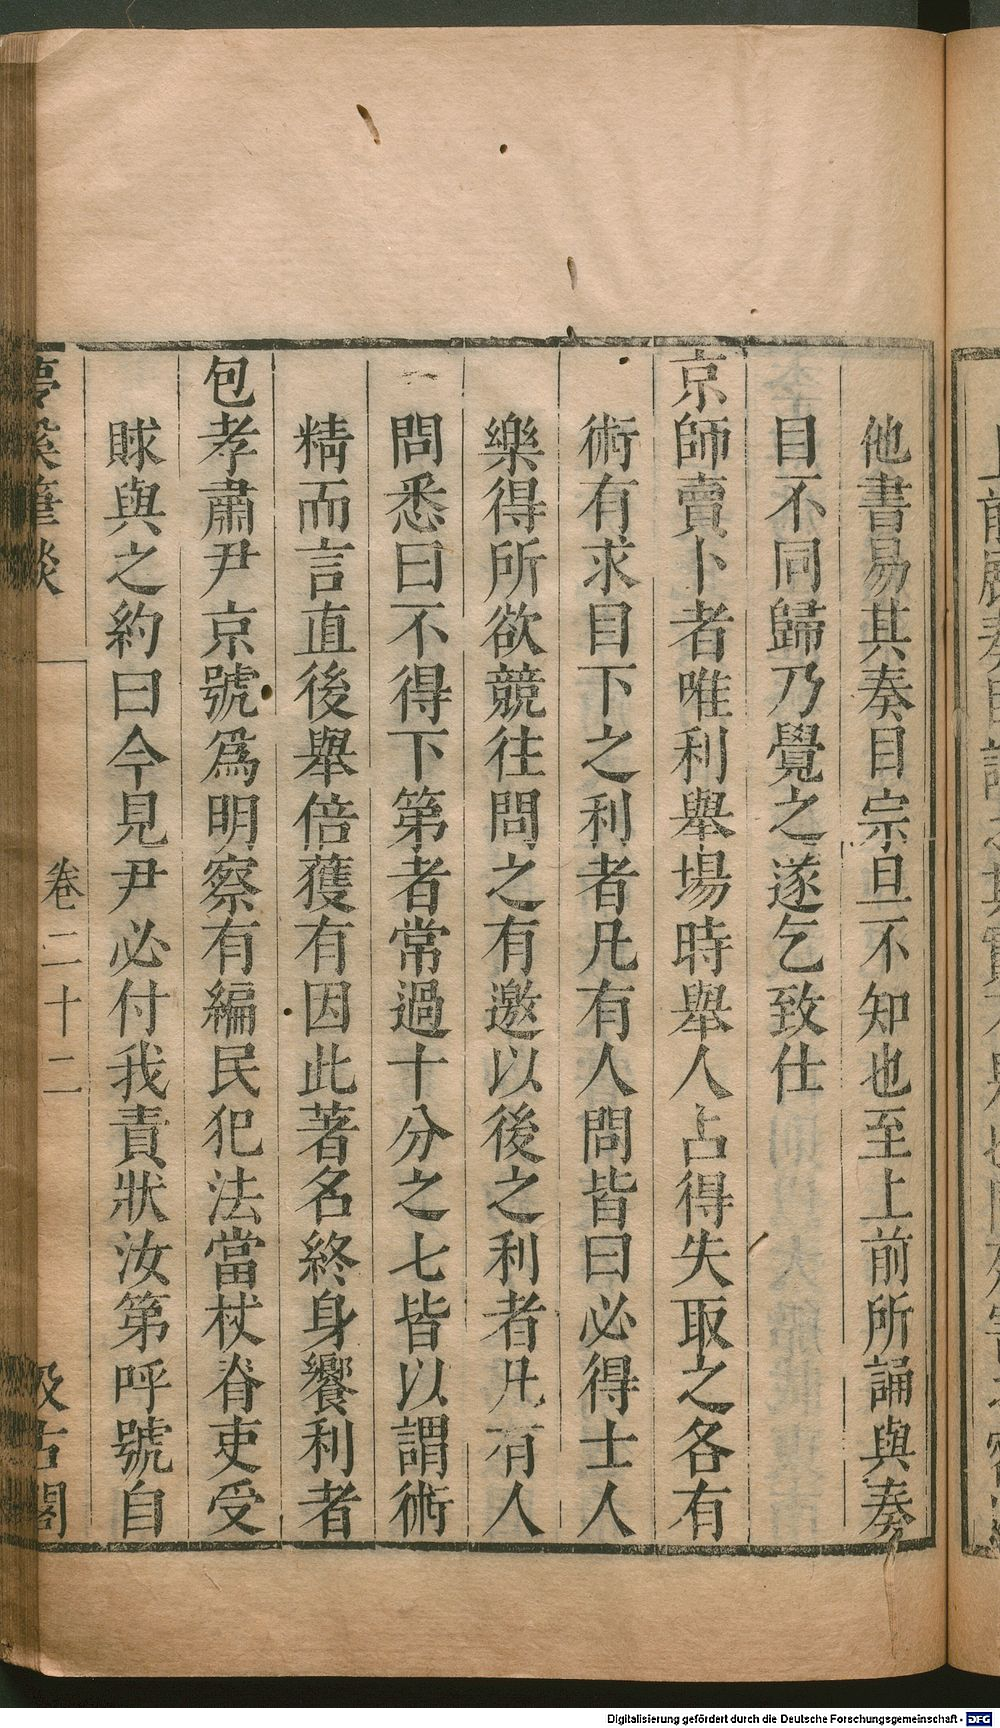 他書易其奏目宗旦不知也至上前所誦與奏
目不同歸乃覺之遂乞致仕
京師賣卜者唯利舉場時舉人占得失取之各有
術有求目下之利者凡有人問皆曰必得士人
樂得所欲競往問之有邀以後之利者凡有人
問悉曰不得下第者常過十分之七皆以謂術
精而言直後舉倍獲有因此著名終身饗利者
包孝肅尹京號爲明察有編民犯法當杖脊吏受
賕與之約曰今見尹必付我責狀汝第呼號自
夢溪筆談
卷二十二
汲古閣
Digitalisierung gefördert durch die Deutsche Forschungsgemeinschaft - DFG